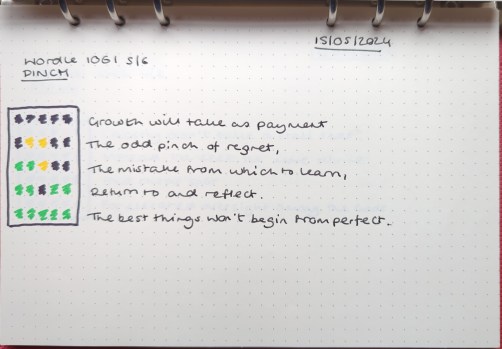 15/05/2024
Wordle 1061 5/6
PINCH
Growth will take as payment
The odd pinch of regret,
The mistake from which to learn,
Return to and reflect.
The best things won't begin from perfect.